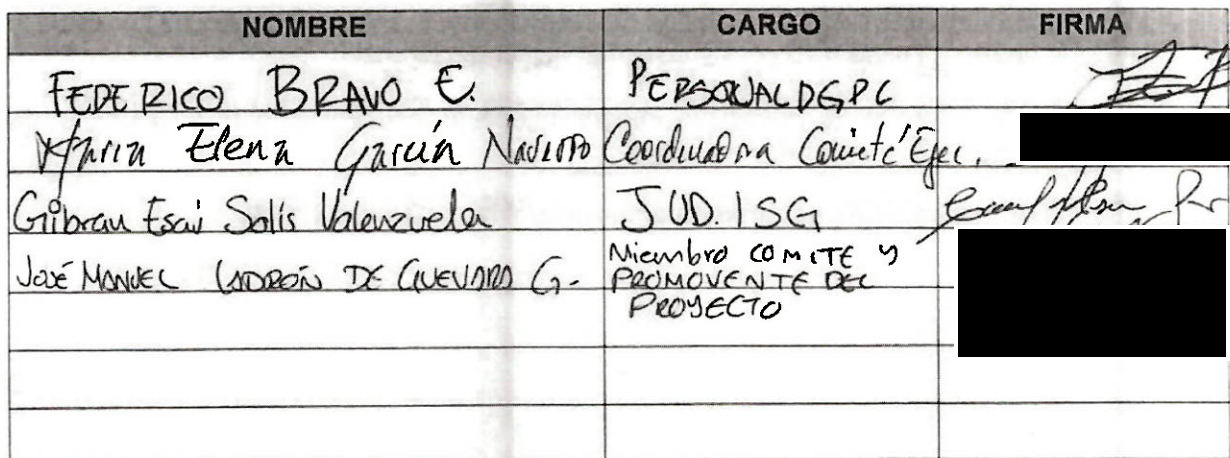 NOMBRE CARGO FIRMA
FEDERICO BRAVO E. PERSONAL DGPC
Maria Elena García Navarro Coordinadora Comité Ejec.
Gibran Esaú Solis Valenzuela JUD. ISG
JOSÉ MANUEL LADRÓN DE GUEVARA G. Miembro COMITE y
PROMOVENTE DEL
PROYECTO